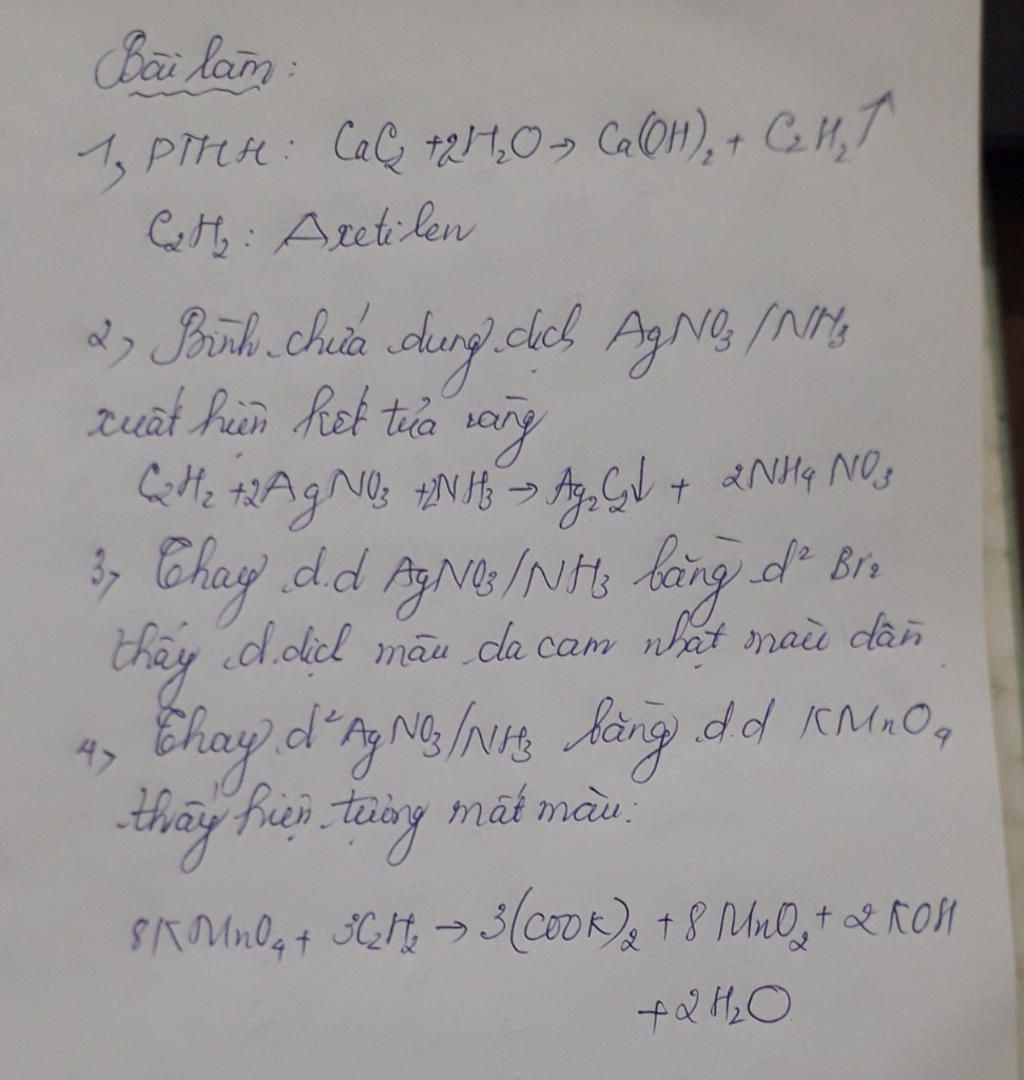 Bài làm:
1, PTHH: CaC₂ +2H₂O → Ca(OH)₂ + C₂H₂↑
C₂H₂: Axetilen
2, Bình chứa dung dịch AgNO₃/NH₃
xuất hiện kết tủa vàng
C₂H₂ +2AgNO₃ +2NH₃ → Ag₂C₂↓ + 2NH₄NO₃
3, Thay d.d AgNO₃/NH₃ bằng d² Br₂
thấy d.dịch màu da cam nhạt màu dần
4, Thay d² AgNO₃/NH₃ bằng d.d KMnO₄
thấy hiện tượng mất màu:
8KMnO₄ + 3C₂H₂ → 3(COOK)₂ + 8MnO₂ + 2KOH
+ 2H₂O